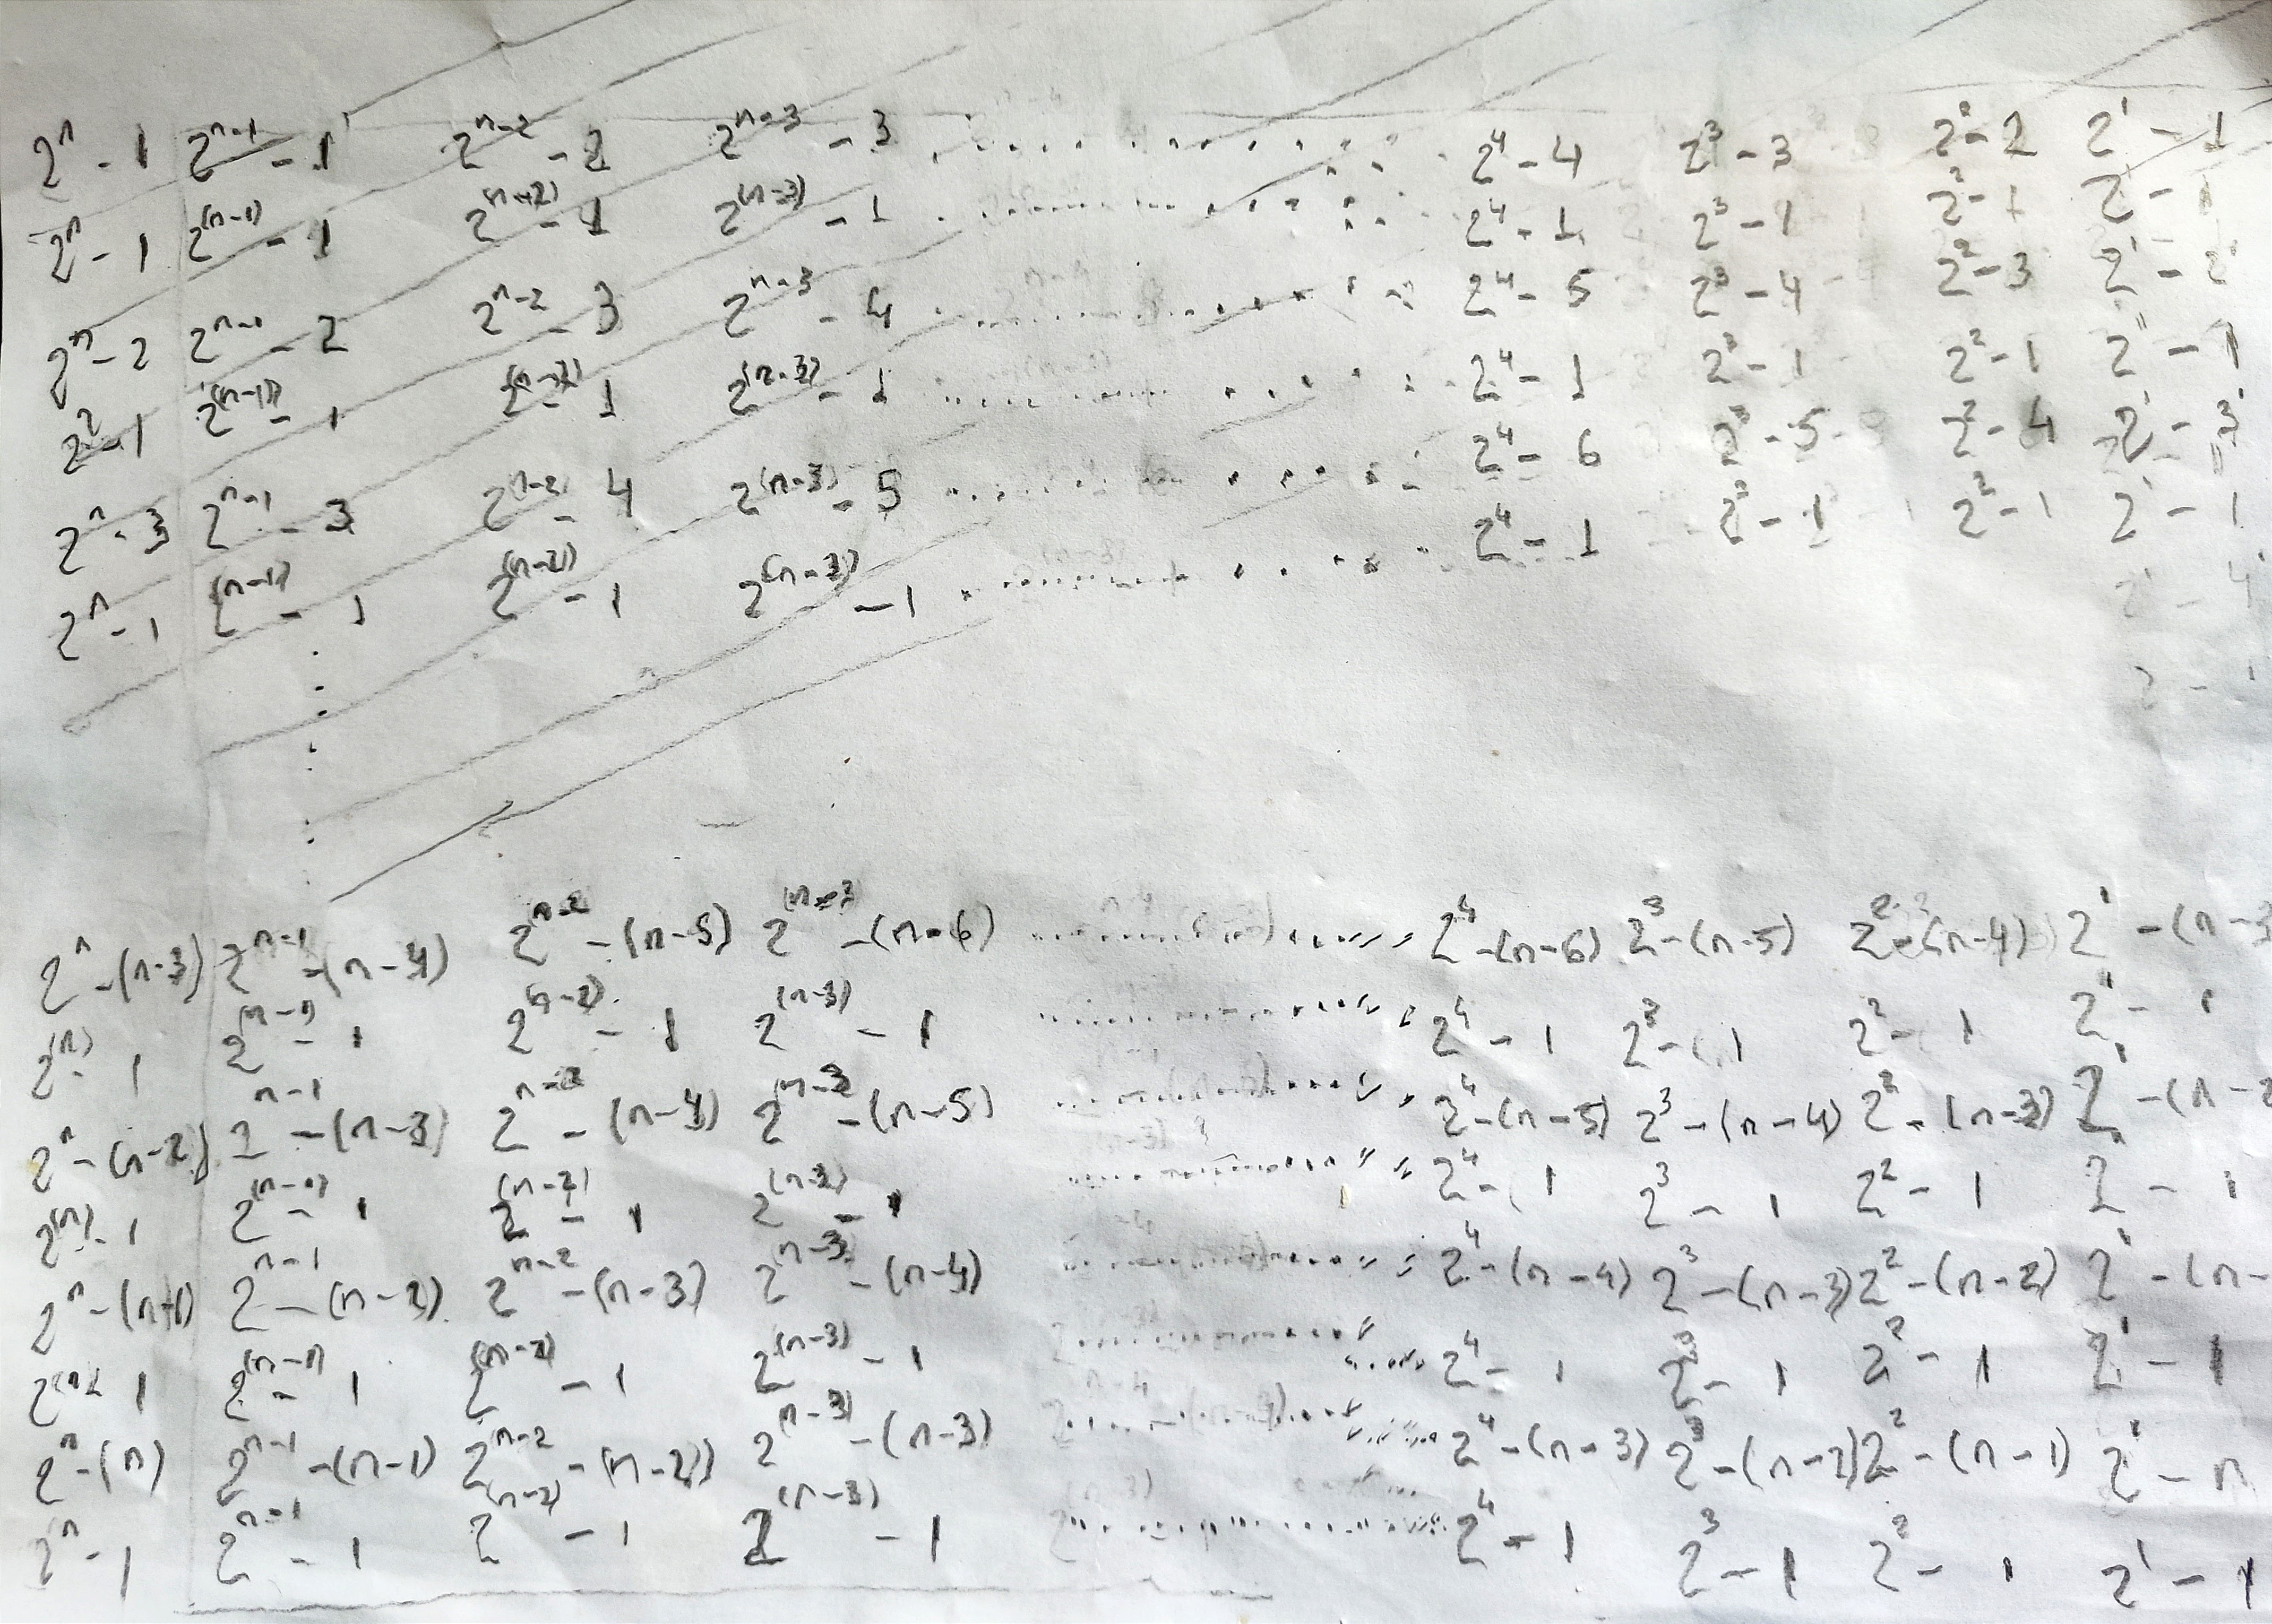 2ⁿ - 1 2ⁿ⁻¹ - 1 2ⁿ⁻² - 2 2ⁿ⁻³ - 3 . . . . . . . . . . 2⁴ - 4 2³ - 3 2² - 2 2¹ - 1
2ⁿ - 1 2⁽ⁿ⁻¹⁾ - 1 - 1 2⁽ⁿ⁻³⁾ - 1 . . . . . . . . . . 2⁴ - 1 2³ - 1 2² - 1 2 - 1
2ⁿ - 2 2ⁿ⁻¹ - 2 2ⁿ⁻² - 3 2ⁿ⁻³ - 4 . . . . . . . . . . 2⁴ - 5 2³ - 4 2² - 3 2¹ - 2
- 1 2⁽ⁿ⁻¹⁾ - 1 2⁽ⁿ⁻²⁾ - 1 2⁽ⁿ⁻³⁾ - 1 . . . . . . . . . . 2⁴ - 1 2³ - 1 2² - 1 2¹ - 1
2ⁿ - 3 2ⁿ⁻¹ - 3 2⁽ⁿ⁻²⁾ - 4 2⁽ⁿ⁻³⁾ - 5 . . . . . . . . . . 2⁴ - 6 2³ - 5 2² - 4 2¹ - 3
2ⁿ - 1 2⁽ⁿ⁻¹⁾ - 1 2⁽ⁿ⁻²⁾ - 1 2⁽ⁿ⁻³⁾ - 1 . . . . . . . . . . 2⁴ - 1 2³ - 1 2² - 1 2¹ - 1
2ⁿ - (n-3) 2ⁿ⁻¹ - (n-4) 2ⁿ⁻² - (n-5) 2⁽ⁿ⁻³ - (n-6) . . . . . . . . . . 2⁴ - (n-6) 2³ - (n-5) 2² - (n-4) 2¹ - (n-3
2⁽ⁿ⁾ - 1 2⁽ⁿ⁻¹⁾ - 1 2⁽ⁿ⁻²⁾ - 1 2⁽ⁿ⁻³⁾ - 1 . . . . . . . . . . 2⁴ - 1 2³ - 1 2² - 1 2¹ - 1
2ⁿ - (n-2) 2ⁿ⁻¹ - (n-3) 2ⁿ⁻² - (n-4) 2ⁿ⁻³ - (n-5) . . . . . . . . . . 2⁴ - (n-5) 2³ - (n-4) 2² - (n-3) 2¹ - (n-2
2⁽ⁿ⁾ - 1 2⁽ⁿ⁻¹⁾ - 1 2⁽ⁿ⁻²⁾ - 1 2⁽ⁿ⁻³⁾ - 1 . . . . . . . . . . 2⁴ - 1 2³ - 1 2² - 1 2 - 1
2ⁿ - 2ⁿ⁻¹ - (n-2) 2ⁿ⁻² - (n-3) 2ⁿ⁻³ - (n-4) . . . . . . . . . . 2⁴ - (n-4) 2³ - (n-3) 2² - (n-2) 2¹ - (n-
2⁽ⁿ⁾ - 1 2⁽ⁿ⁻¹⁾ - 1 2⁽ⁿ⁻²⁾ - 1 2⁽ⁿ⁻³⁾ - 1 . . . . . . . . . . 2⁴ - 1 2³ - 1 2² - 1 2¹ - 1
2ⁿ - (n) 2ⁿ⁻¹ - (n-1) 2ⁿ⁻² - (n-2) 2ⁿ⁻³⁾ - (n-3) . . . . . . . . . . 2⁴ - (n-3) 2³ - (n-2) 2² - (n-1) 2¹ - n
2ⁿ - 1 2ⁿ⁻¹ - 1 2⁽ⁿ⁻²⁾ - 1 2⁽ⁿ⁻³⁾ - 1 . . . . . . . . . . 2⁴ - 1 2³ - 1 2² - 1 2¹ - 1